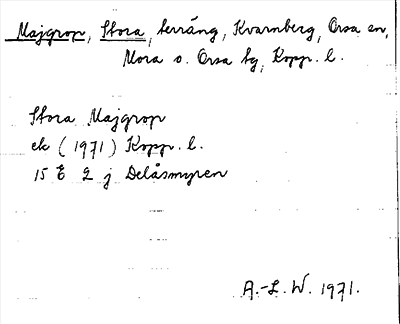 Majgrop, Stora, terräng, Kvarnberg, Orsa sn,
Mora o. Orsa tg, Kopp. l.
Stora Majgrop
ek (1971) Kopp. l.
15 E 2 j Delåsmyren
A.-L. W. 1971.